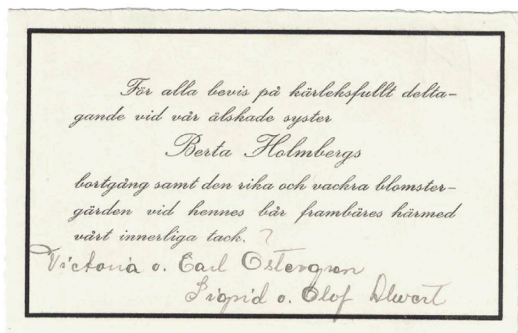 För alla bevis på kärleksfullt delta-
gande vid vår älskade syster
Berta Holmbergs
bortgång samt den rika och vackra blomster-
gärden vid hennes bår frambäres härmed
vårt innerliga tack. ?
Victoria o. Carl Östergren
Sigrid o. Olof